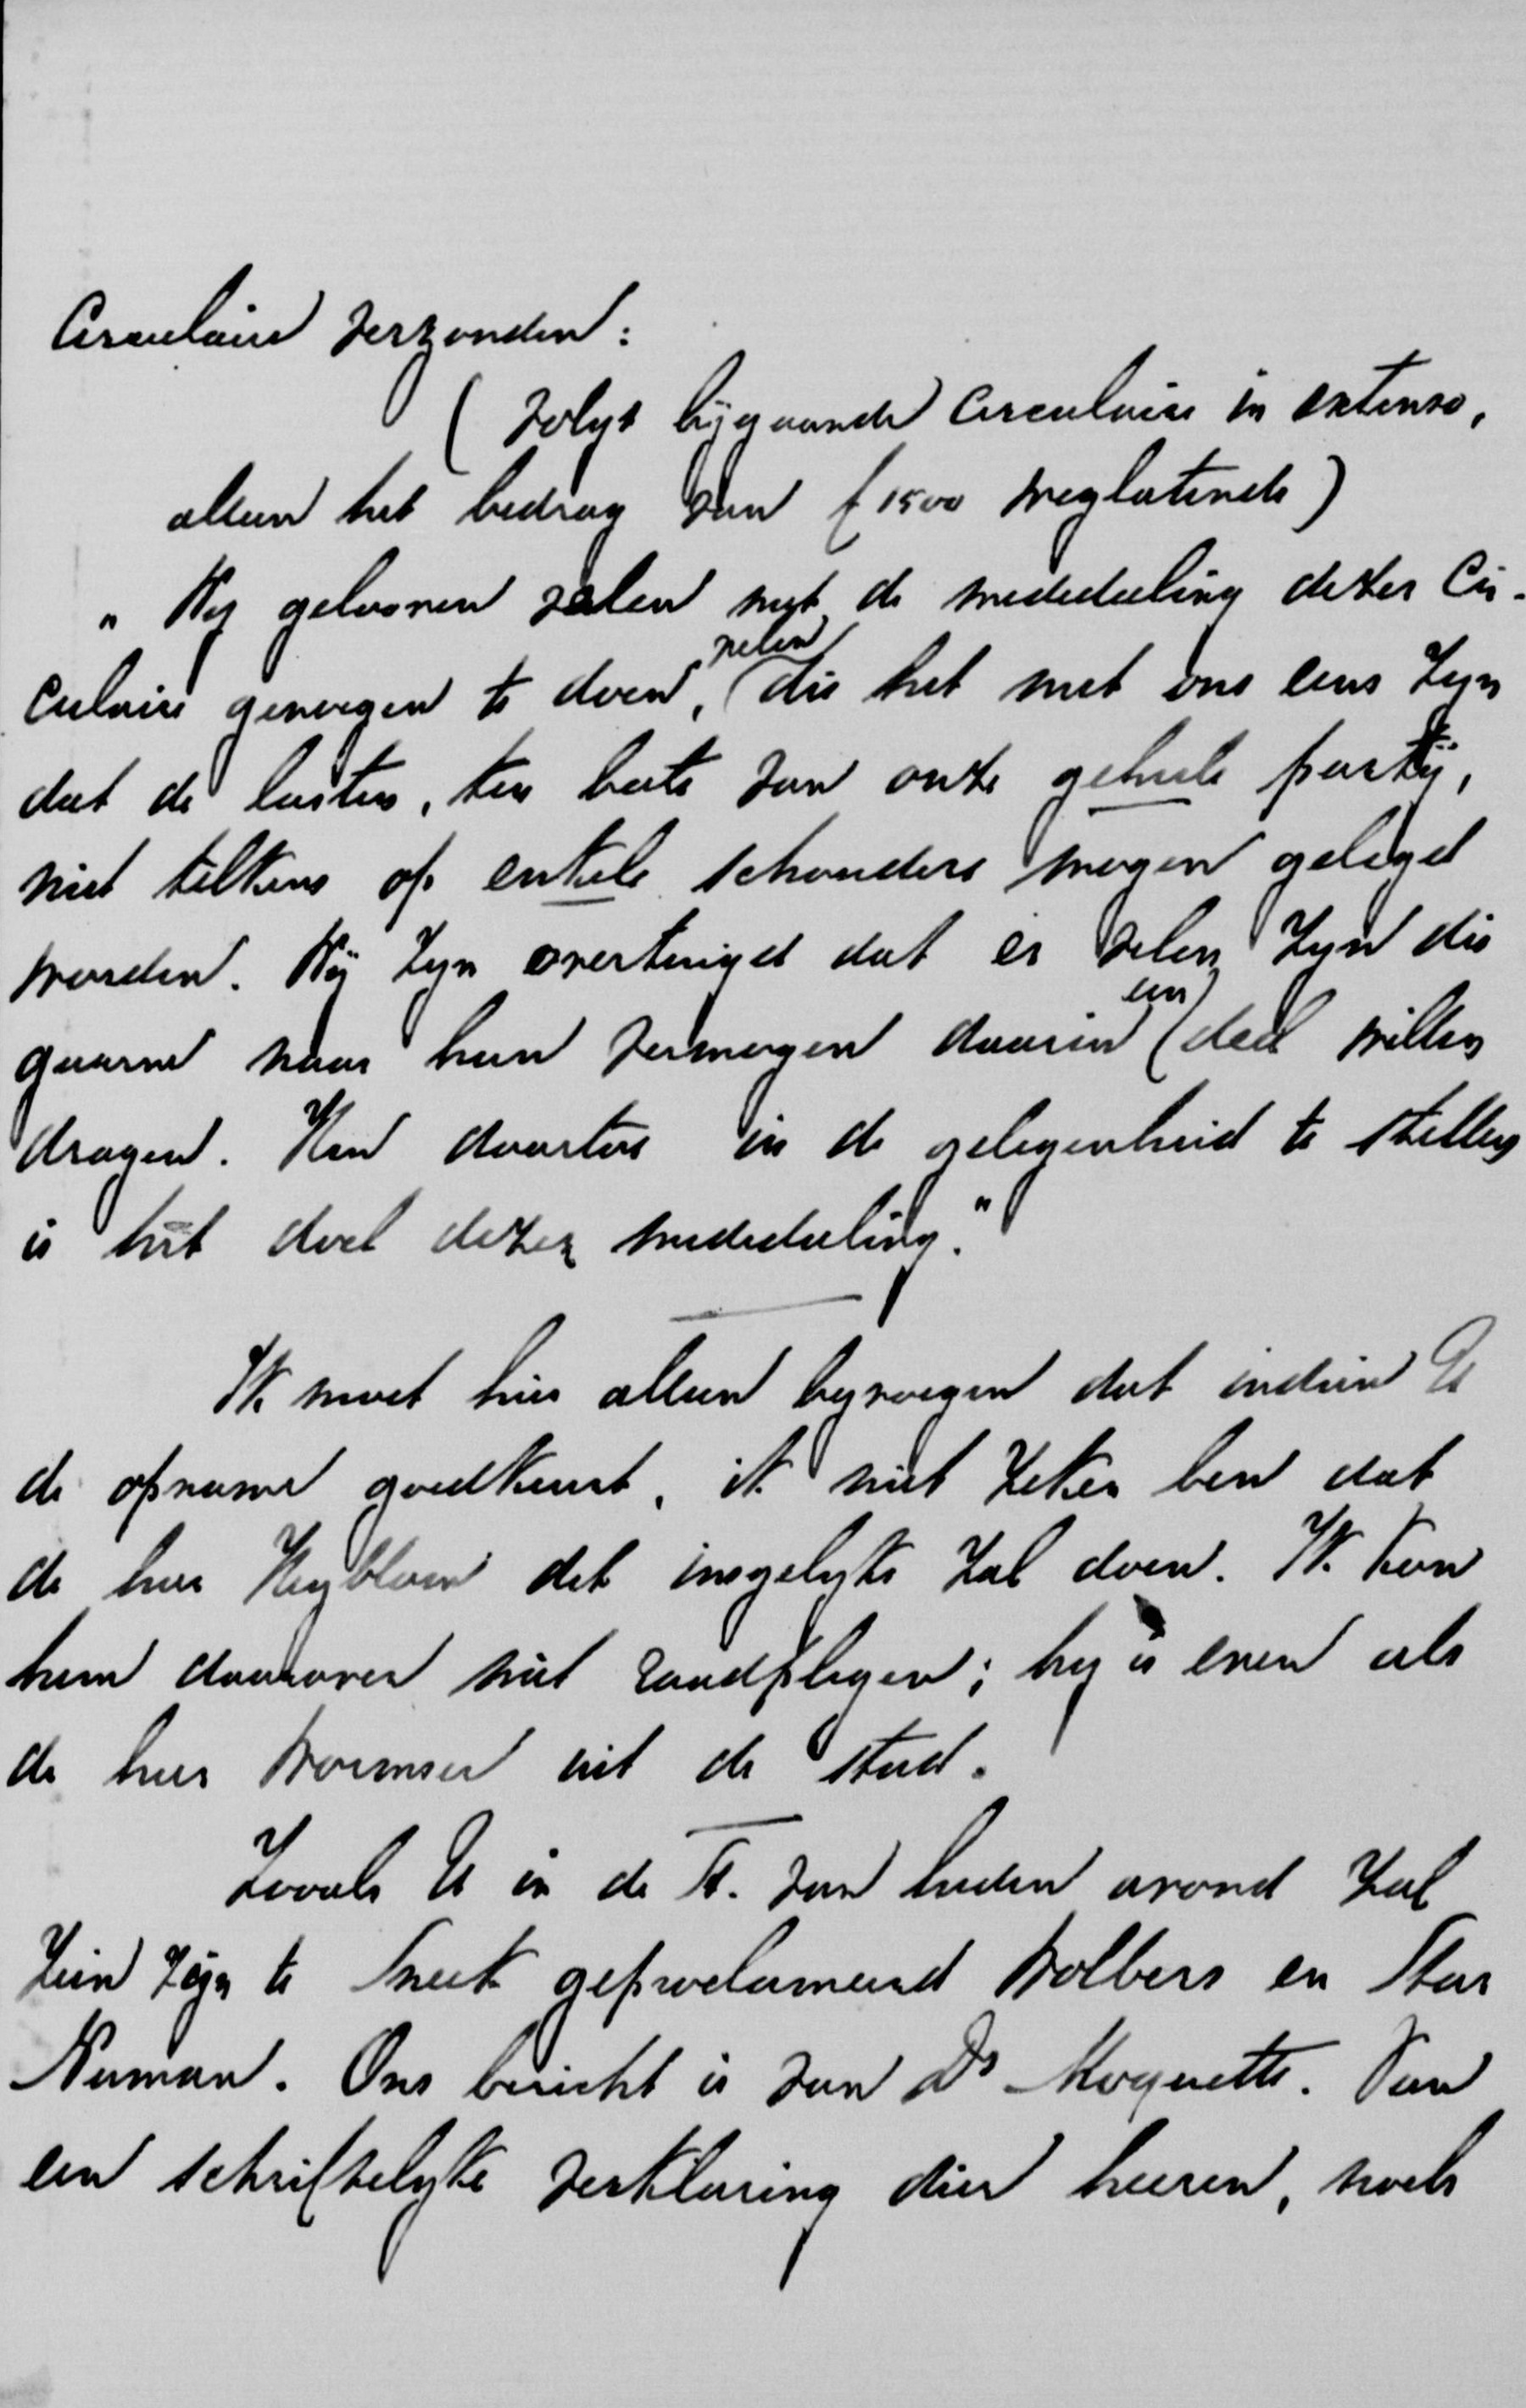 Circulaire verzonden:
(volgt bijgaande Circulaire in extenso,
alleen het bedrag van f 1500 weglatende)
„Wij gelooven velen met de mededeeling dezer Cir-
culaire genoegen te doen, velen die het met ons eens zijn
dat de lasten, ten bate van onze geheele partij,
niet telkens op enkele schouders mogen gelegd
worden. Wij zijn overtuigd dat er velen zijn die
gaarne naar hun vermogen daarin een deel willen
dragen. Hen daartoe in de gelegenheid te stellen
is het doel dezer mededeeling."
Ik moet hier alleen byvoegen dat indien U
de opname goedkeurt, ik niet zeker ben dat
de heer Heyblom dit insgelyks zal doen. Ik kon
hem daarover niet raadplegen; hy is even als
de heer Wormser uit de stad.
Zooals U in de St. van heden avond zal
zien zijn te Sneek geproclameerd Wolbers en Star
Numan. Ons bericht is van Ds Moquette. Van
een schriftelyke verklaring dier heeren, noch